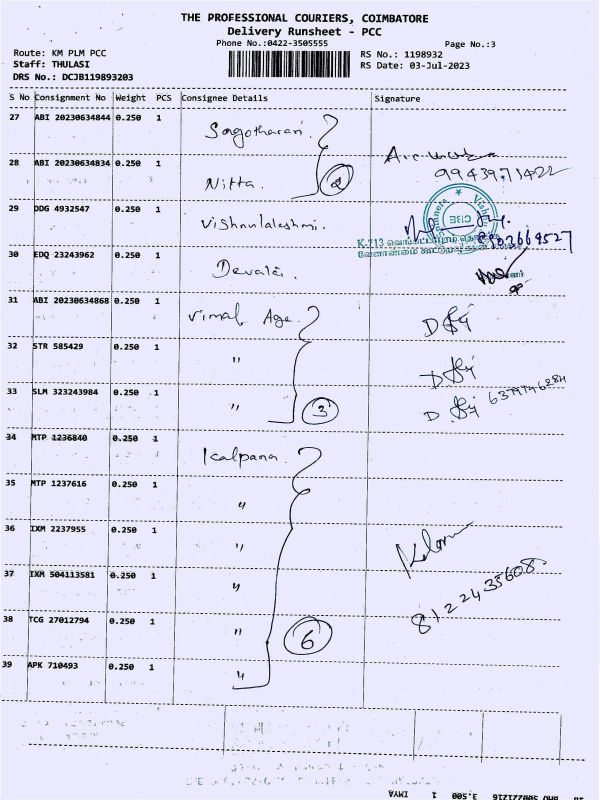 THE PROFESSIONAL COURIERS, COIMBATORE
Delivery Runsheet - PCC
Phone No.:0422-3505555
Page No.:3
Route: KM PLM PCC
Staff: THULASI
DRS No.: DCJB119893203
RS No.: 1198932
RS Date: 03-Jul-2023
S No Consignment No Weight PCS Consignee Details Signature
27 ABI 20230634844 0.250 1
28 ABI 20230634834 0.250 1 Nitta. 2
9943971422
29 DDG 4932547 0.250 1
30 EDQ 23243962 0.250 1
31 ABI 20230634868 0.250 1 Vimal Age
32 STR 585429 0.250 1 "
33 SLM 323243984 0.250 1 " 3
34 MTP 1236840 0.250 1 Kalpana.
35 MTP 1237616 0.250 1 "
36 IXM 2237955 0.250 1 "
37 IXM 504113581 0.250 1 "
8122435608
38 TCG 27012794 0.250 1 " 6
39 APK 710493 0.250 1 "